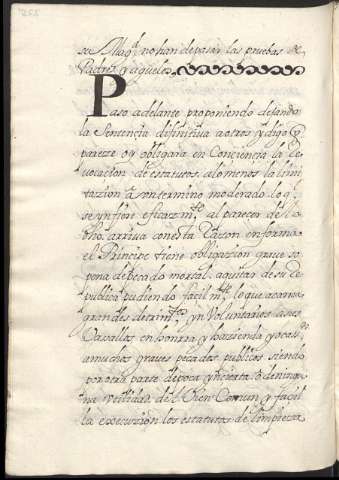 su Magd. no han de pasar las pruebas de
Padres y aguelos
Paso adelante proponiendo dejando
la Sentencia difinitiva a otros y digo q
pareze oy obligara en Conciencia la de
rogacion de estatutos alomenos la limi
tazion a un termino moderado lo q.
se ynfiere eficazmte. al parecer de lo
dho. arriva con esta Razon en forma
el Principe tiene obligazion grave so
pena de pecado mortal a quitar de su Re
publica pudiendo facilmte. lo que acarrea
grandes detrimtos. ynVoluntarios a sus
Vasallos en honrra y hazienda y ocasna.
a muchos graves pecados publicos siendo
por otra parte de poca yncierta o de ningu
na utilidad del Bien Comun y facil
la execuzion los estatutos de limpieza